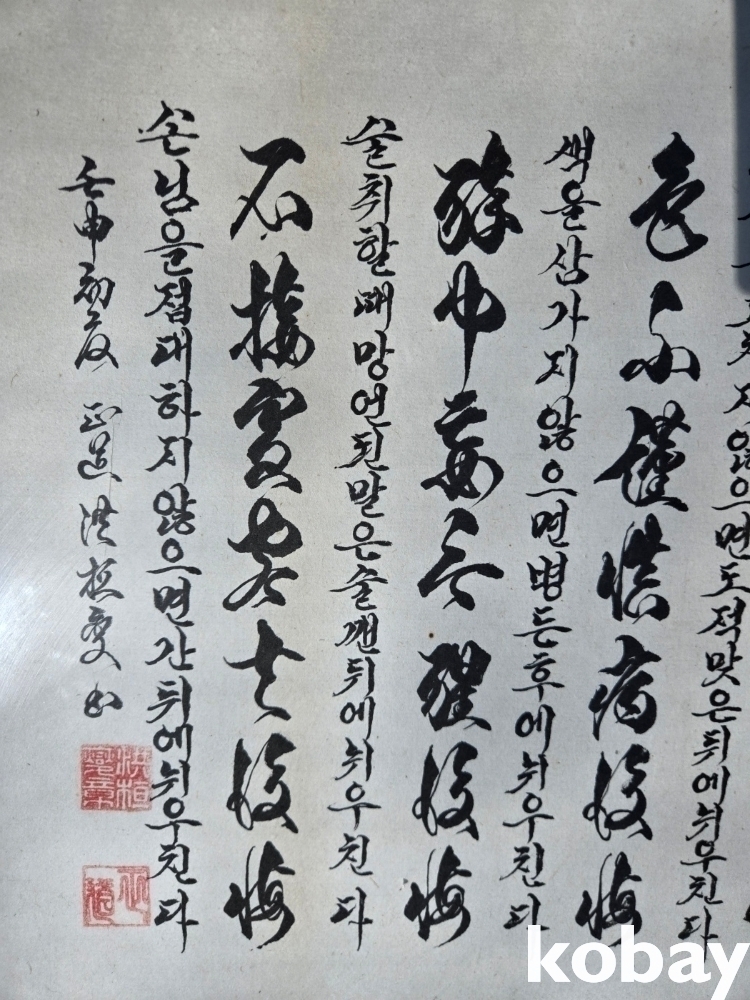 지않으면도적맞은뒤에뉘우친다
色不謹愼病後悔
색을삼가지않으면병든후에뉘우친다
醉中妄言醒後悔
술취할때망언된말은술깬뒤에뉘우친다
不接賓客去後悔
손님을접대하지않으면간뒤에뉘우친다
壬申初夏 洪桓燮
洪桓燮章
kobay